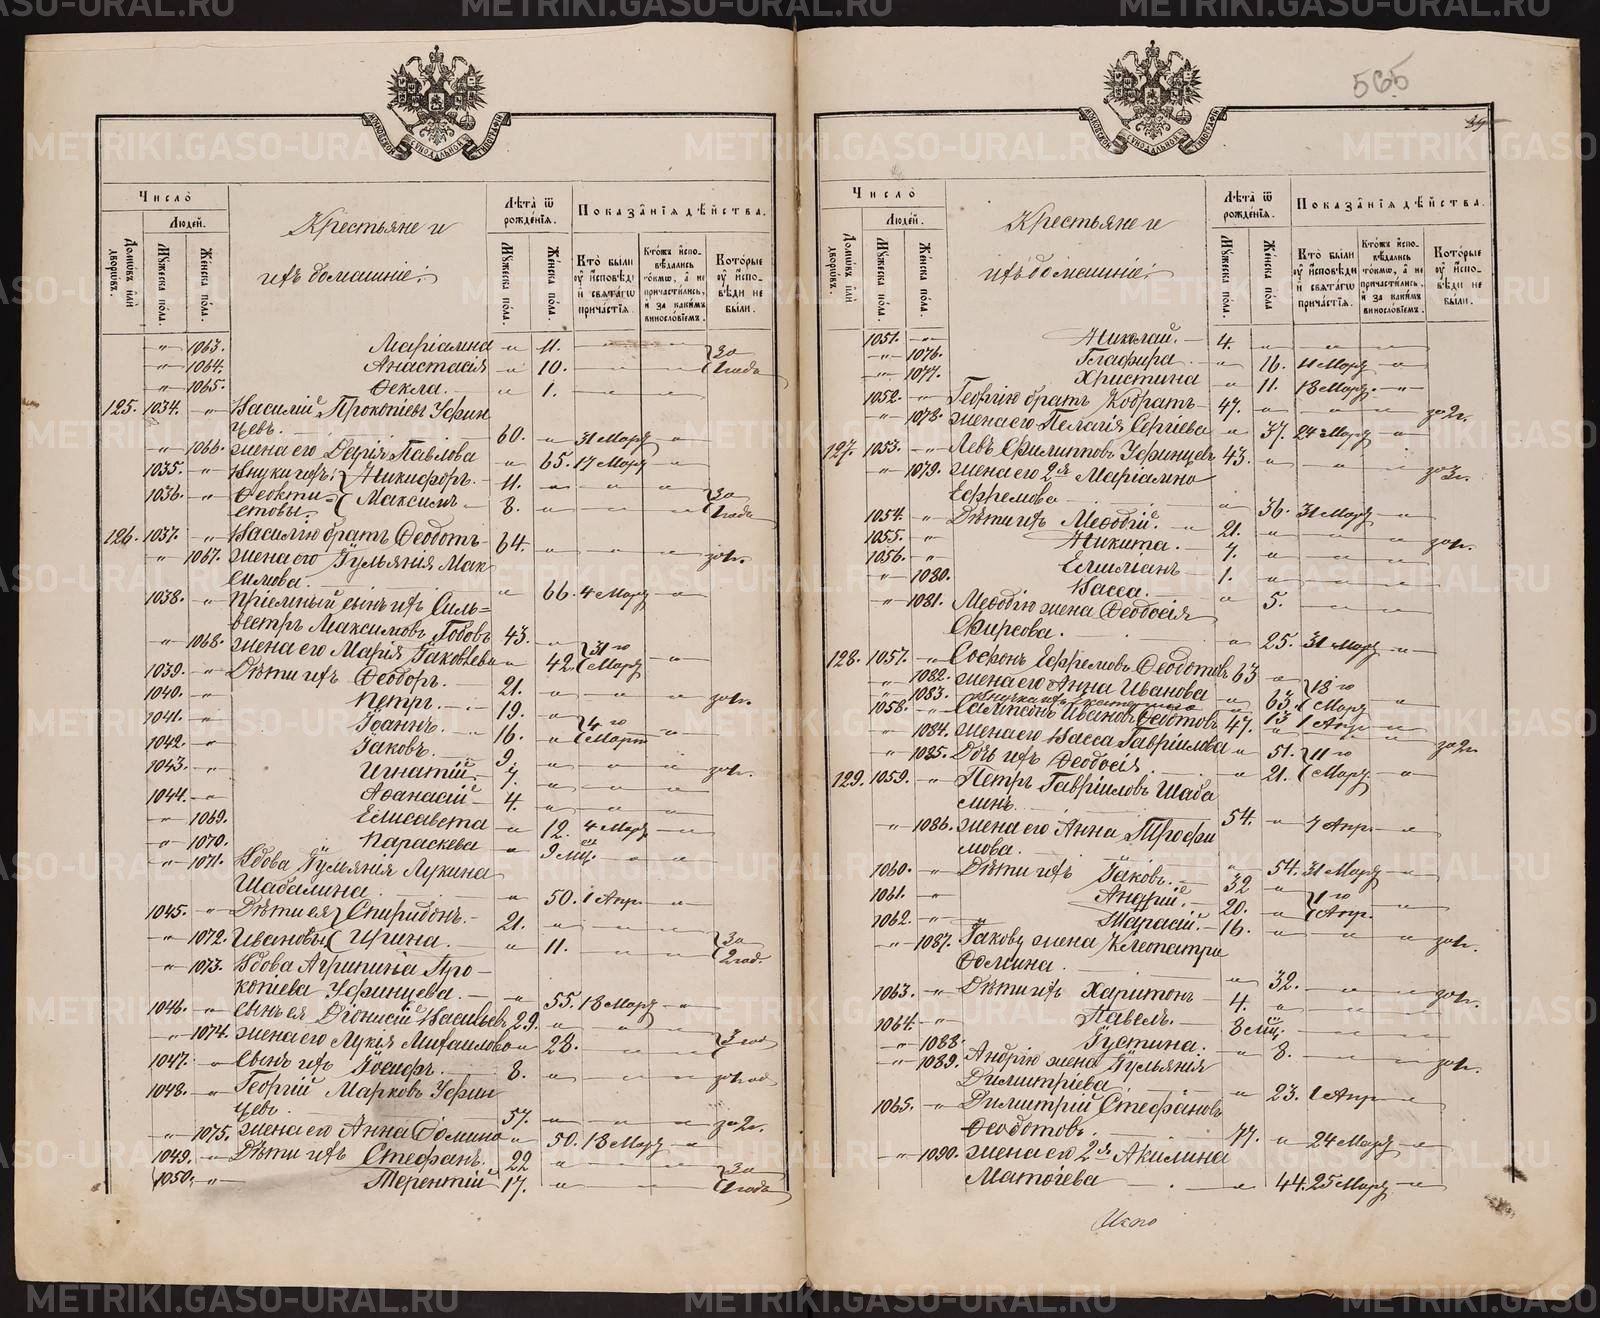 METRIKI.GASO-URAL.RU
565
39
МОСКОВСКОЙ СѴНОДАЛЬНОЙ ТИПОГРАФІИ
Число
Людей.
Домѡвъ или дворѡвъ.
Мꙋжеска пола.
Женска пола.
Крестьяне и
ихъ домашніе:
Лѣта ѿ рожденїѧ.
Мꙋжеска пола.
Женска пола.
Показанїѧ дѣйства.
Кто были ᲂу исповѣди и свѧтагѡ причастїѧ.
Ктожъ исповѣдались токмѡ, а не причастились, и за какимъ винословїемъ.
Которые ᲂу исповѣди не были.
-"- 1063. Маріамна -"- 11. за
-"- 1064. Анастасія -"- 10. 1 года
-"- 1065. Ѳекла. -"- 1.
125. 1034. -"- Василій Прокопіевъ Уфин
цевъ. 60. -"- 31 Марта
-"- 1066. жена его Дарія Павлова -"- 65. 17 Марта
1035. -"- Внуки ихъ: Никифоръ. 11.
1036. -"- Ѳеокти= Максимъ 8. за
стовы. 1 года
126. 1037. -"- Василію братъ Ѳеодотъ 64. за 1 г.
-"- 1067. жена его Іульянія Мак
симова. -"- 66. 4 Марта
1038. -"- пріемный сынъ ихъ Силь=
вестръ Максимовъ Бобовъ 43.
-"- 1068. жена его Марія Іаковлева -"- 42. 31 го Марта
1039. -"- Дѣти ихъ Ѳеодоръ. 21. за 1 г.
1040. -"- Петръ. 19.
1041. -"- Іоаннъ. 16. 4 го Марта
1042. -"- Іаковъ. 9. за 1 г.
1043. -"- Игнатій. 7.
1044. -"- Аѳанасій 4.
-"- 1069. Елисавета -"- 12. 4 Марта
-"- 1070. Параскева -"- 9 мц.
-"- 1071. Вдова Іульянія Лукина
Шабалина. -"- 50. 1 Апр.
1045. -"- Дѣти ея Спиридонъ. 21.
-"- 1072. Ивановы Ирина. -"- 11. за 2 год.
-"- 1073. Вдова Агрипина Про-
копіева Уфинцева. -"- 55. 18 Марта
1046. -"- сынъ ея Діонисій Васильевъ 29.
-"- 1074. жена его Лукія Михаилова -"- 28. 3 год
1047. -"- Сынъ ихъ Іосифъ. 8. за 1 год
1048. -"- Георгій Марковъ Уфин
цевъ. 57. за 2 г.
-"- 1075. жена его Анна Ѳомина -"- 50. 18 Марта
1049. -"- Дѣти ихъ Стефанъ. 22 за
1050. -"- Терентій 17. 1 года
Число
Людей.
Домѡвъ или дворѡвъ.
Мꙋжеска пола.
Женска пола.
Крестьяне и
ихъ домашніе:
Лѣта ѿ рожденїѧ.
Мꙋжеска пола.
Женска пола.
Показанїѧ дѣйства.
Кто были ᲂу исповѣди и свѧтагѡ причастїѧ.
Ктожъ исповѣдались токмѡ, а не причастились, и за какимъ винословїемъ.
Которые ᲂу исповѣди не были.
1051. -"- Николай. 4.
-"- 1076. Глафира. -"- 16. 11 Марта
-"- 1077. Христина -"- 11. 18 Марта
1052. -"- Георгію братъ Кодратъ 47. за 2 г.
-"- 1078. жена его Пелагія Сергіева -"- 37. 24 Марта
127. 1053. -"- Левъ Филипповъ Уфинцевъ 43. за 3 г.
-"- 1079. жена его 2я Маріамна
Ефремова -"- 36. 31 Марта
1054. -"- Дѣти ихъ Меѳодій. 21. за 1 г.
1055. -"- Никита. 7.
1056. -"- Емиліанъ 1.
-"- 1080. Васса. -"- 5.
-"- 1081. Меѳодію жена Ѳеодосія
Фирсова. -"- 25. 31 Марта
128. 1057. -"- Софонъ Ефремовъ Ѳеодотовъ 63
-"- 1082. жена его Анна Иванова -"- 63. 18 го Марта
-"- 1083. 13 1 Апр.
1058. -"- Сампсонъ Ивановъ Ѳеодотовъ 47. за 2 г.
-"- 1084. жена его Васса Гавріилова -"- 51. 11 го
-"- 1085. Дочь ихъ Ѳеодосія -"- 21. Марта
129. 1059. -"- Петръ Гавріиловъ Шаба
линъ. 54. -"- 7 Апр.
-"- 1086. жена его Анна Трофи
мова. -"- 54. 31 Марта
1060. -"- Дѣти ихъ Іаковъ. 32 1 го
1061. -"- Андрей. 20. Апр.
1062. -"- Тарасій. 16. за 1 г.
-"- 1087. Іакову жена Клеопатра
Ѳомина. -"- 32.
1063. -"- Дѣти ихъ Харитонъ 4. за 1 г.
1064. -"- Павелъ. 8 мц.
-"- 1088. Іустина. -"- 8.
-"- 1089. Андрію жена Іульянія за 1 г.
Димитріева. -"- 23. 1 Апр
1065. -"- Димитрій Стефановъ
Ѳеодотовъ. 77. -"- 24 Марта
-"- 1090. жена его 2я Акилина
Матѳіева -"- 44. 25 Марта